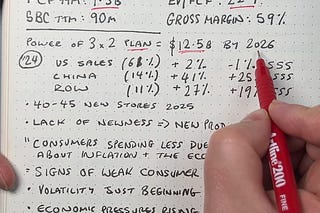 1.5B
SBC TTM: 90M
GROSS MARGIN: 59%
POWER OF 3x2 PLAN = $12.5B BY 2026
'24
US SALES +2% -1%
CHINA (14%) +41%
ROW (11%) +27%
• 40-45 NEW STORES 2025
• LACK OF NEWNESS => NEW
"CONSUMERS SPENDING LESS DUE
ABOUT INFLATION + THE
= SIGNS OF WEAK CONSUMER
• VOLATILITY JUST BEGINNING
• ECONOMIC PRESSURES RISING
Artline 200
FINE